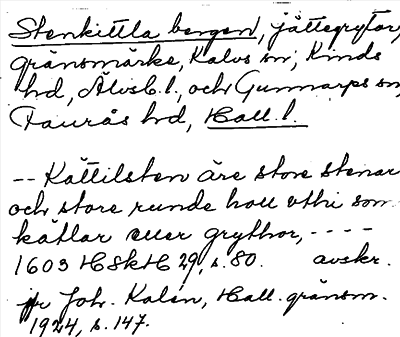 Stenkittla bergen, jättegrytor,
gränsmärke, Kalvs sn, Kinds
hd, Älvsb. l., och Gunnarps sn,
Faurås hd, Hall. l.
-- Kättilsten äre store stenar
och store runde holl vthi som
kätlar eller grythor, ----
1603 HSkH 29, s. 80. avskr.
jfr Joh. Kalén, Hall. gränsm.
1924, s. 147.